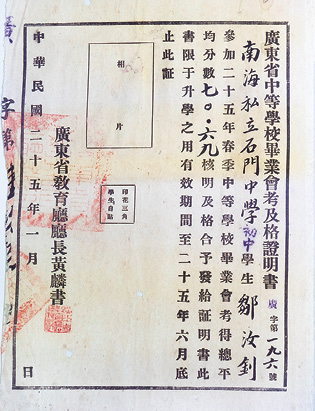 廣東省中等學校畢業會考及格證明書
廣字第一九六號
南海私立石門中學初中學生鄒汝釗
參加二十五年春季中等學校畢業會考得總平
均分數七〇·六九核明及格合予發給証明書此
書限于升學之用有效期間至二十五年六月底
止此証
相片
印花三角
學生自貼
廣東省敎育廳廳長黃麟書
中華民國二十五年一月 日
字第